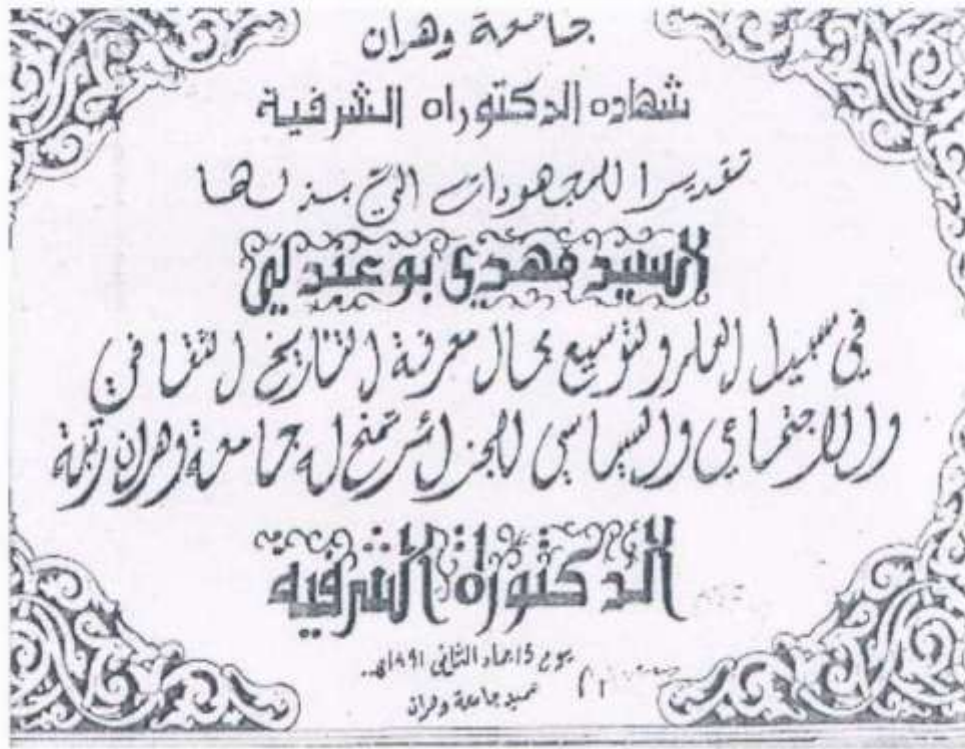 جامعة وهران
شهاده الدكتوراه الشرفية
تقديرا للمجهودات التي بذلها
السيد مهدي بوعبدلي
في سبيل العلم ولتوسيع مجال معرفة التاريخ الثقافي
والاجتماعي والسياسي للجزائر تمنح له جامعة وهران رتبة
الدكتوراه الشرفية
يوم 15 جماد الثاني
عميد جامعة وهران